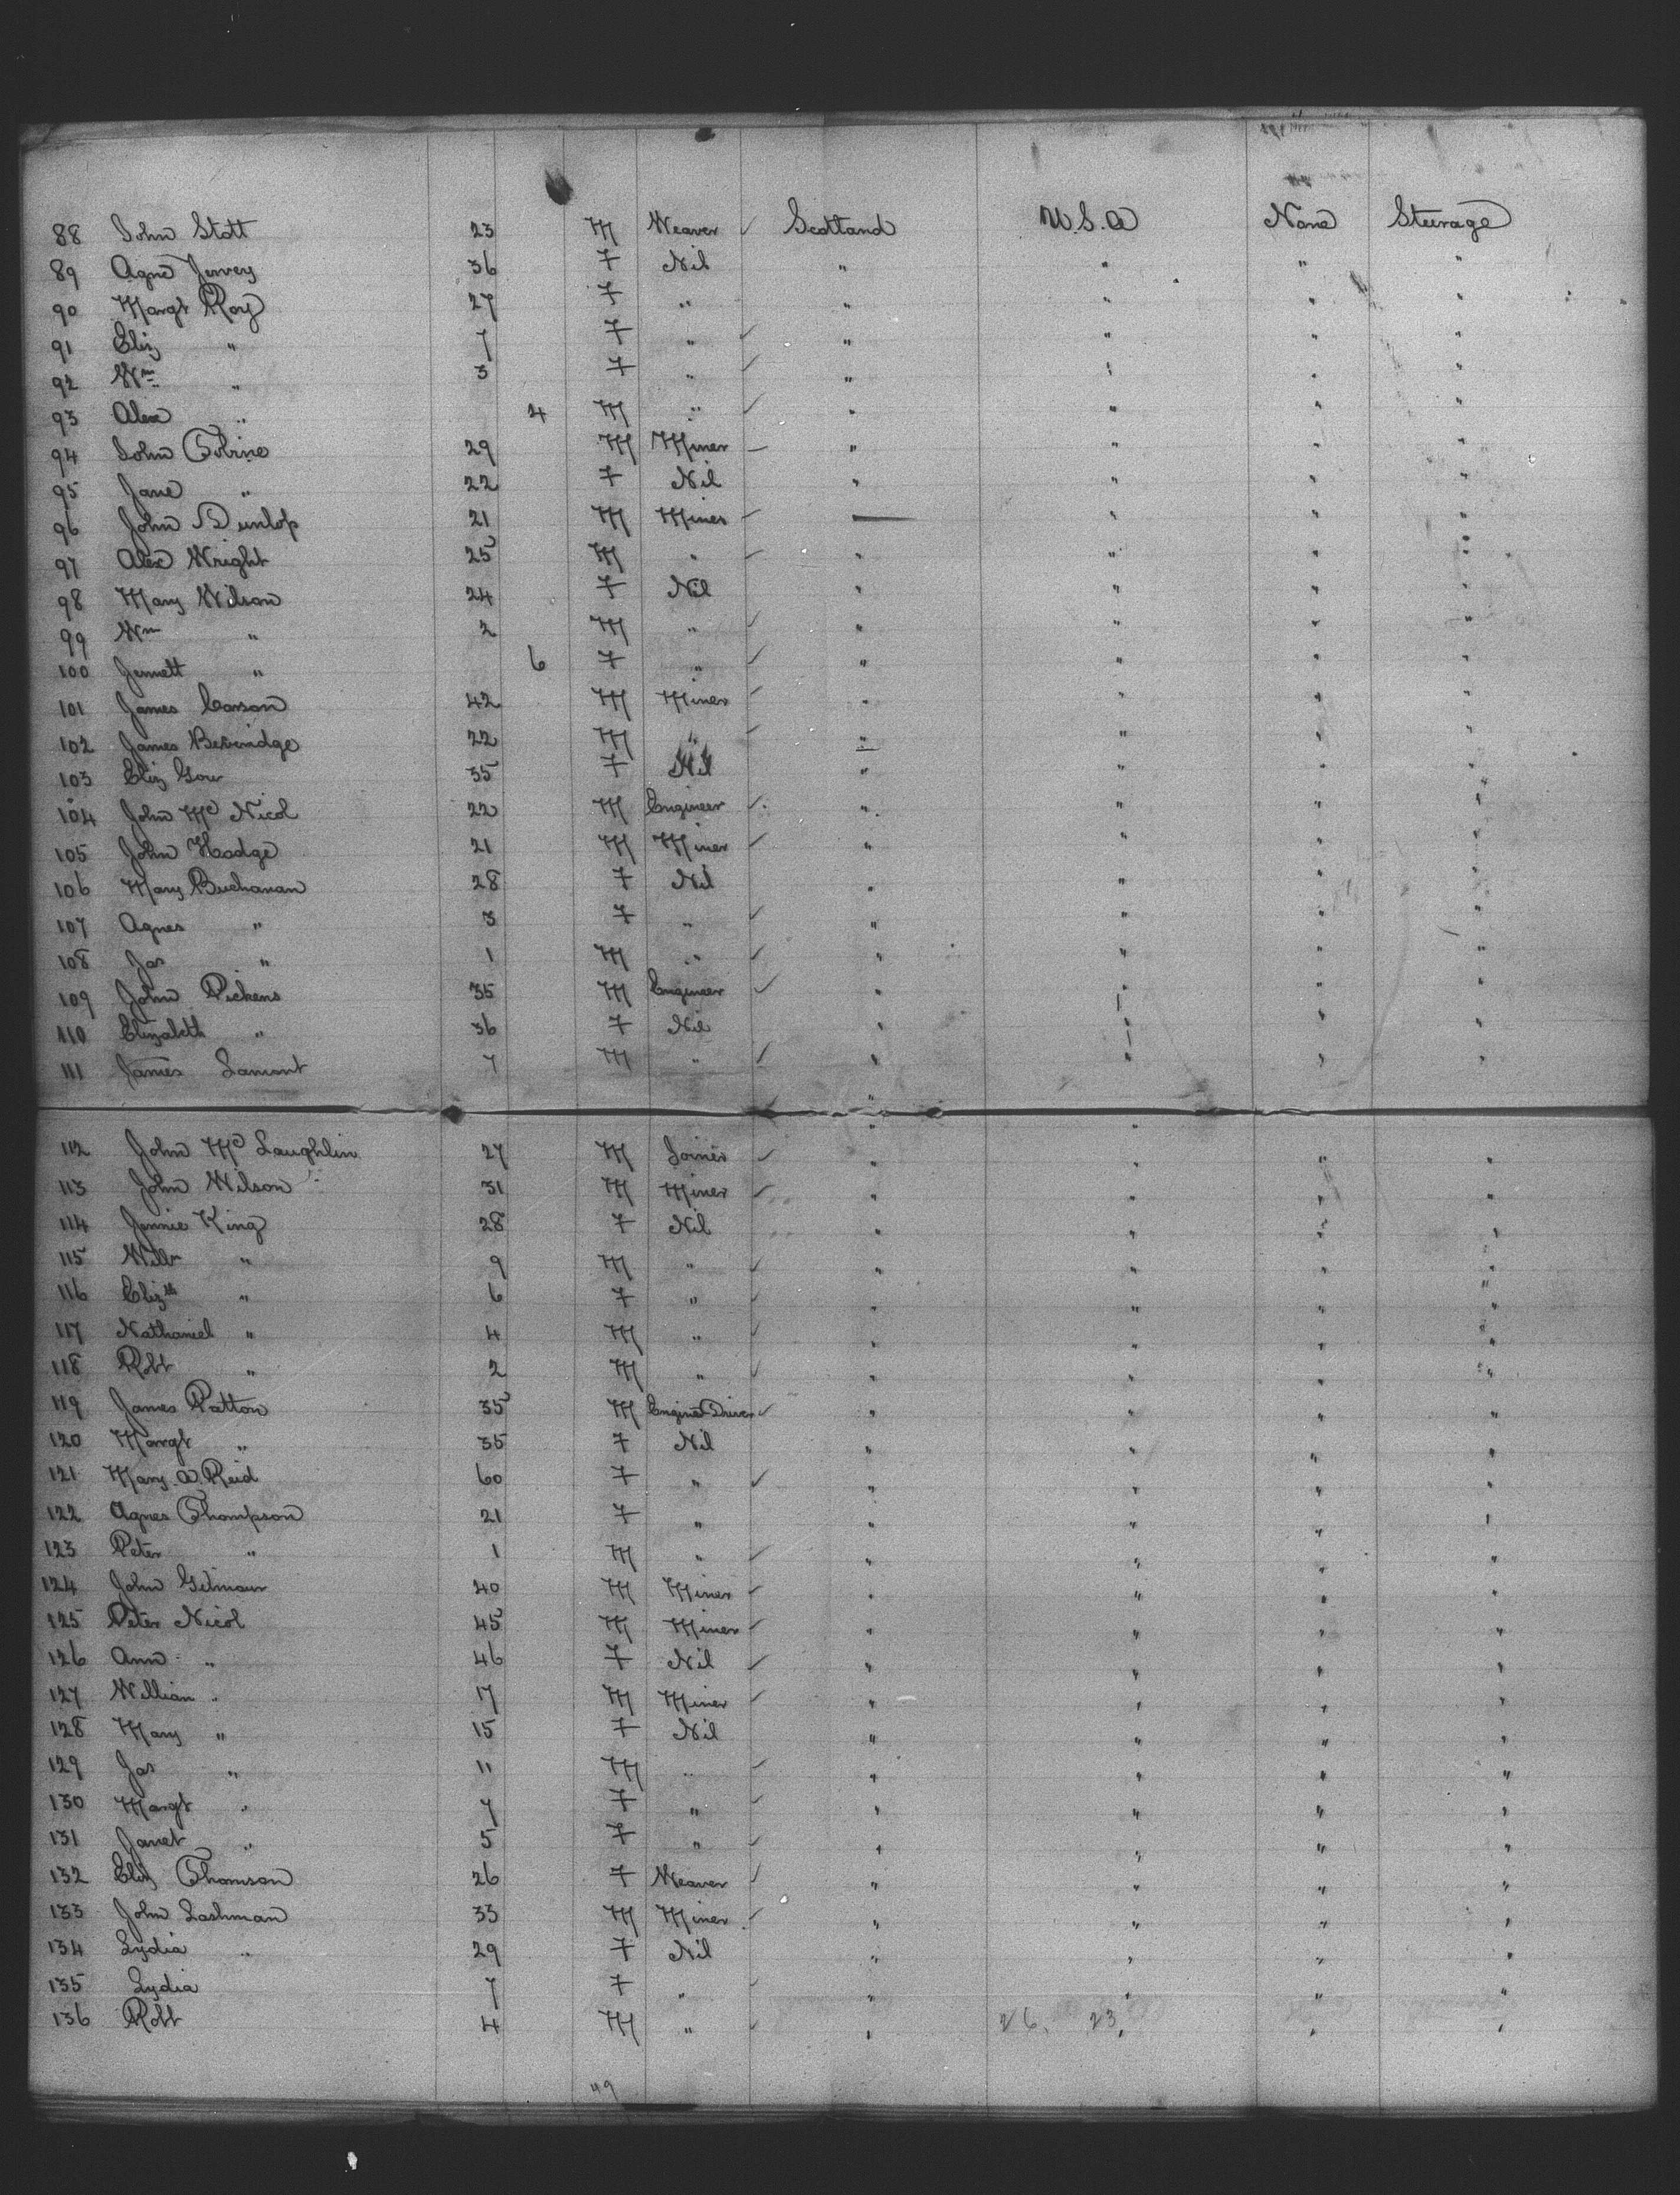 88 John Stott 23 M Weaver ✓ Scotland U.S.A None Steerage
89 Agne Jervey 36 F Nil " " " "
90 Margt Roy 27 F " " " " "
91 Eliz " 7 F " ✓ " " " "
92 Wm " 3 F " ✓ " " " "
93 Alex " 4 M " ✓ " " " "
94 John 29 M Miner – " " " "
95 Jane " 22 F Nil " " " "
96 John Dunlop 21 M Miner ✓ — " " "
97 Alex Wright 25 M " ✓ " " " "
98 Mary Wilson 24 F Nil " " " "
99 Wm " 2 M " ✓ " " " "
100 Jennett " 6 F " ✓ " " " "
101 James Carson 42 M Miner ✓ " " " "
102 James Beveridge 22 M " ✓ " " " "
103 Eliz Gow 35 F Nil " " " "
104 John Mc Nicol 22 M Engineer ✓ " " " "
105 John Hodge 21 M Miner ✓ " " " "
106 Mary Buchanan 28 F Nil " " " "
107 Agnes " 3 F " ✓ " " " "
108 Jas " 1 M " ✓ " " " "
109 John Pickens 35 M Engineer ✓ " " " "
110 Elizabeth " 36 F Nil " " " "
111 James Lamont 7 M " ✓ " " " "
112 John Mc Laughlin 27 M Joiner ✓ " " " "
113 John Wilson 31 M Miner ✓ " " " "
114 Jennie King 28 F Nil " " " "
115 Willm " 9 M " ✓ " " " "
116 Elizth " 6 F " ✓ " " " "
117 Nathaniel " 4 M " ✓ " " " "
118 Robt " 2 M " ✓ " " " "
119 James Patton 35 M Engine Driver ✓ " " " "
120 Margt " 35 F Nil " " " "
121 Mary A. Reid 60 F " ✓ " " " "
122 Agnes Thompson 21 F " " " " "
123 Peter " 1 M " ✓ " " " "
124 John Gilmour 40 M Miner ✓ " " " "
125 Peter Nicol 45 M Miner ✓ " " " "
126 Ann " 46 F Nil ✓ " " " "
127 William " 17 M Miner ✓ " " " "
128 Mary " 15 F Nil " " " "
129 Jas " 11 M " ✓ " " " "
130 Margt " 7 F " ✓ " " " "
131 Janet " 5 F " ✓ " " " "
132 Eliz Thomson 26 F Weaver ✓ " " " "
133 John Lashman 33 M Miner ✓ " " " "
134 Lydia " 29 F Nil " " " "
135 Lydia 7 F " ✓ " " " "
136 Robt 4 M " ✓ " 26. 23. " " "
49